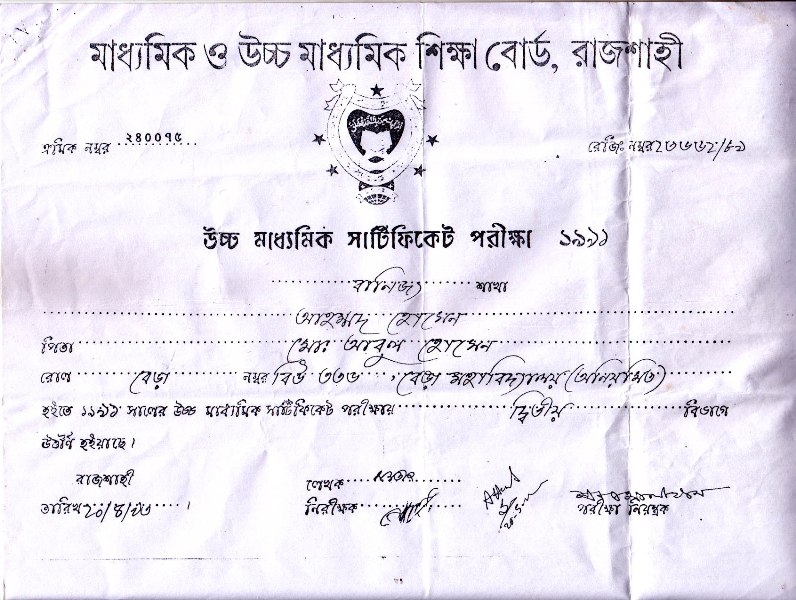 মাধ্যমিক ও উচ্চ মাধ্যমিক শিক্ষা বোর্ড, রাজশাহী
ক্রমিক নম্বর ২৪০০৭৫
রেজিঃ নম্বর
উচ্চ মাধ্যমিক সার্টিফিকেট পরীক্ষা ১৯৯১
বানিজ্য শাখা
আহম্মদ হোসেন
পিতা মোঃ আবুল হোসেন
রোল বেড়া নম্বর বিউ ৩৩৬ , বেড়া মহাবিদ্যালয় (অনিয়মিত)
হইতে ১৯৯১ সালের উচ্চ মাধ্যমিক সার্টিফিকেট পরীক্ষায় দ্বিতীয় বিভাগে
উত্তীর্ণ হইয়াছে।
রাজশাহী
লেখক
তারিখ
নিরীক্ষক
পরীক্ষা নিয়ন্ত্রক